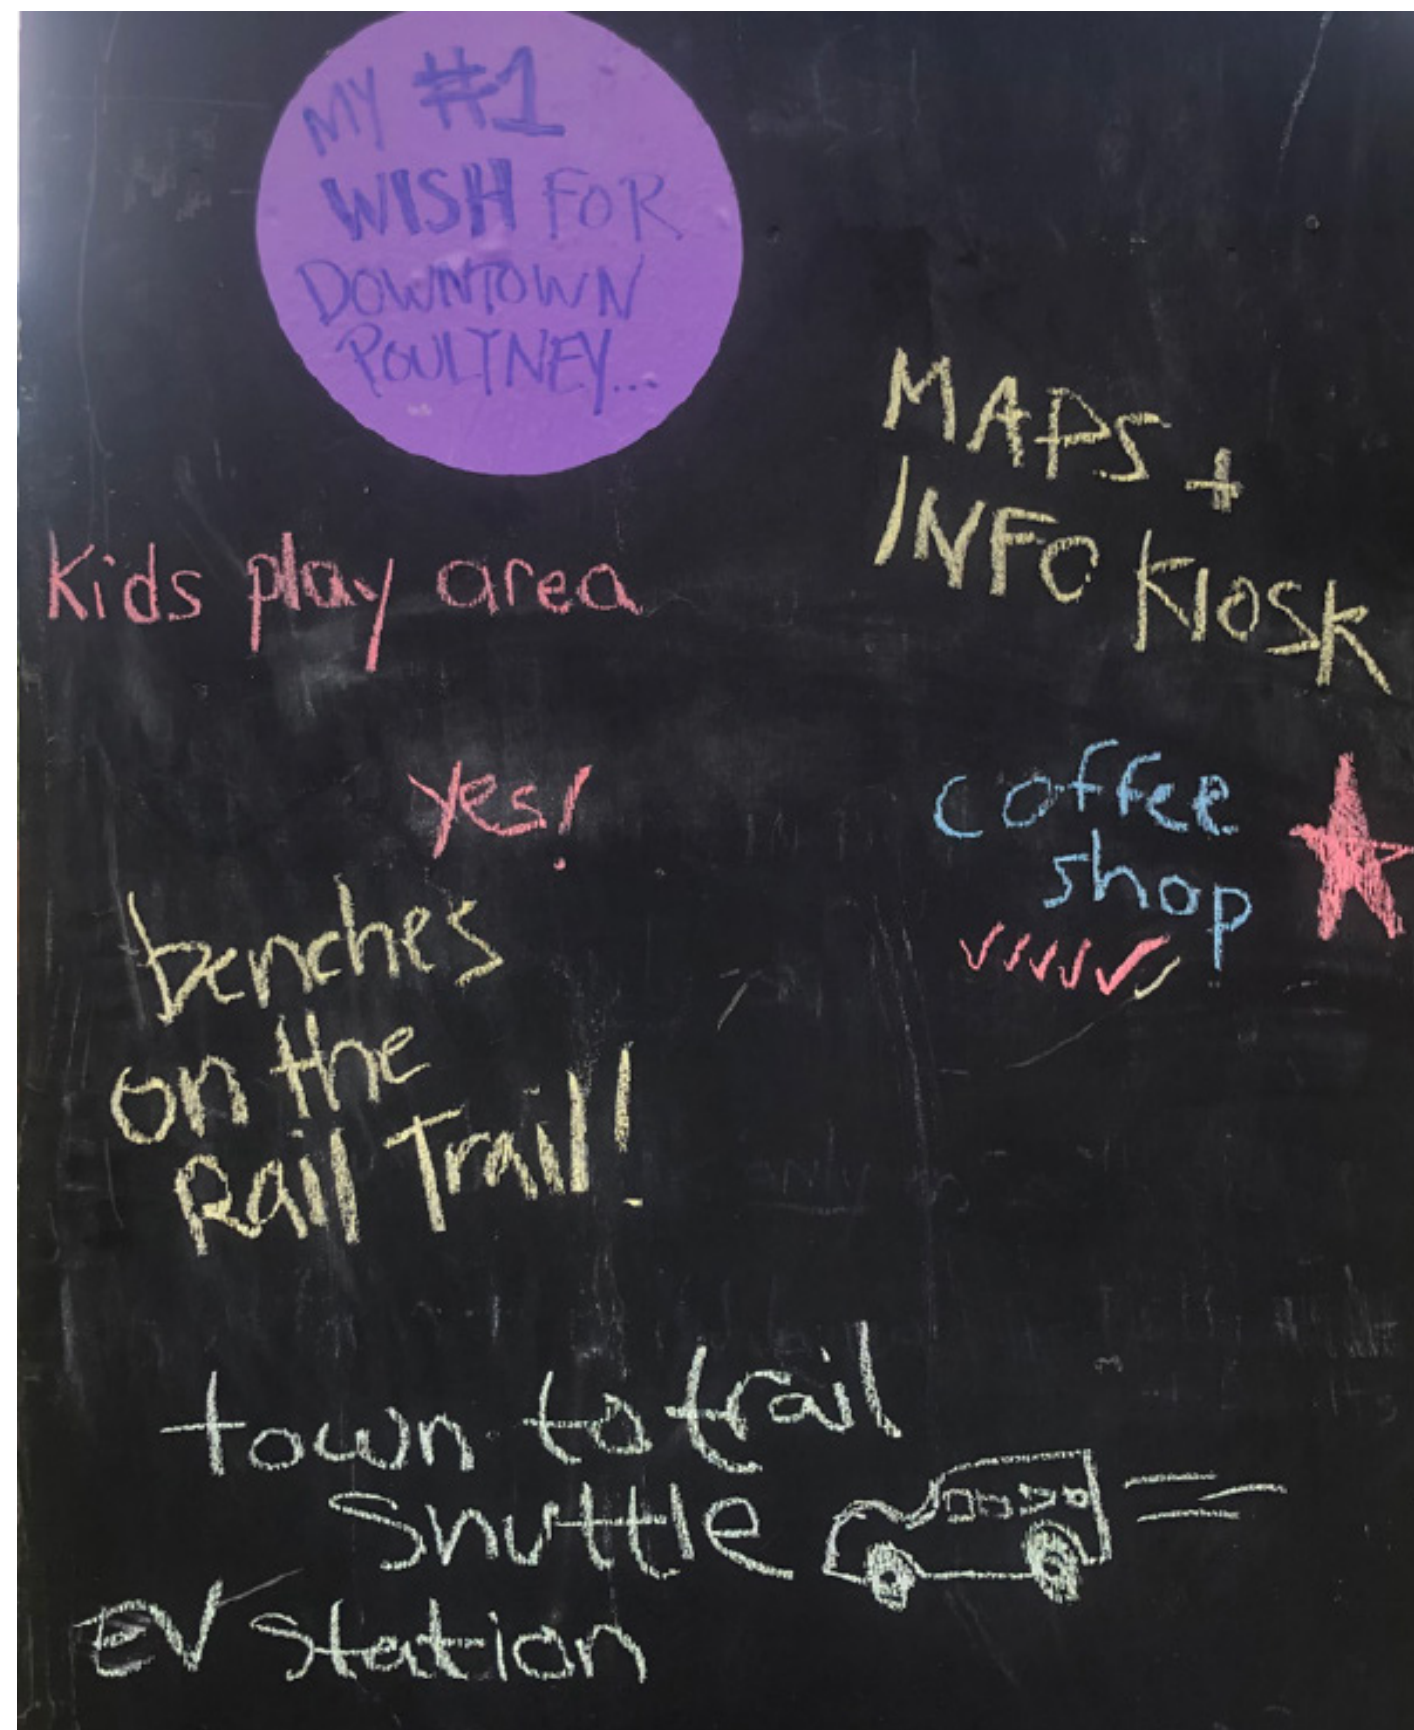 MY #1
WISH FOR
DOWNTOWN
POULTNEY...
MAPS +
INFO KIOSK
Kids play area
yes!
coffee
shop
✓✓✓✓✓✓
benches
on the
Rail Trail!
town to trail
shuttle
EV station